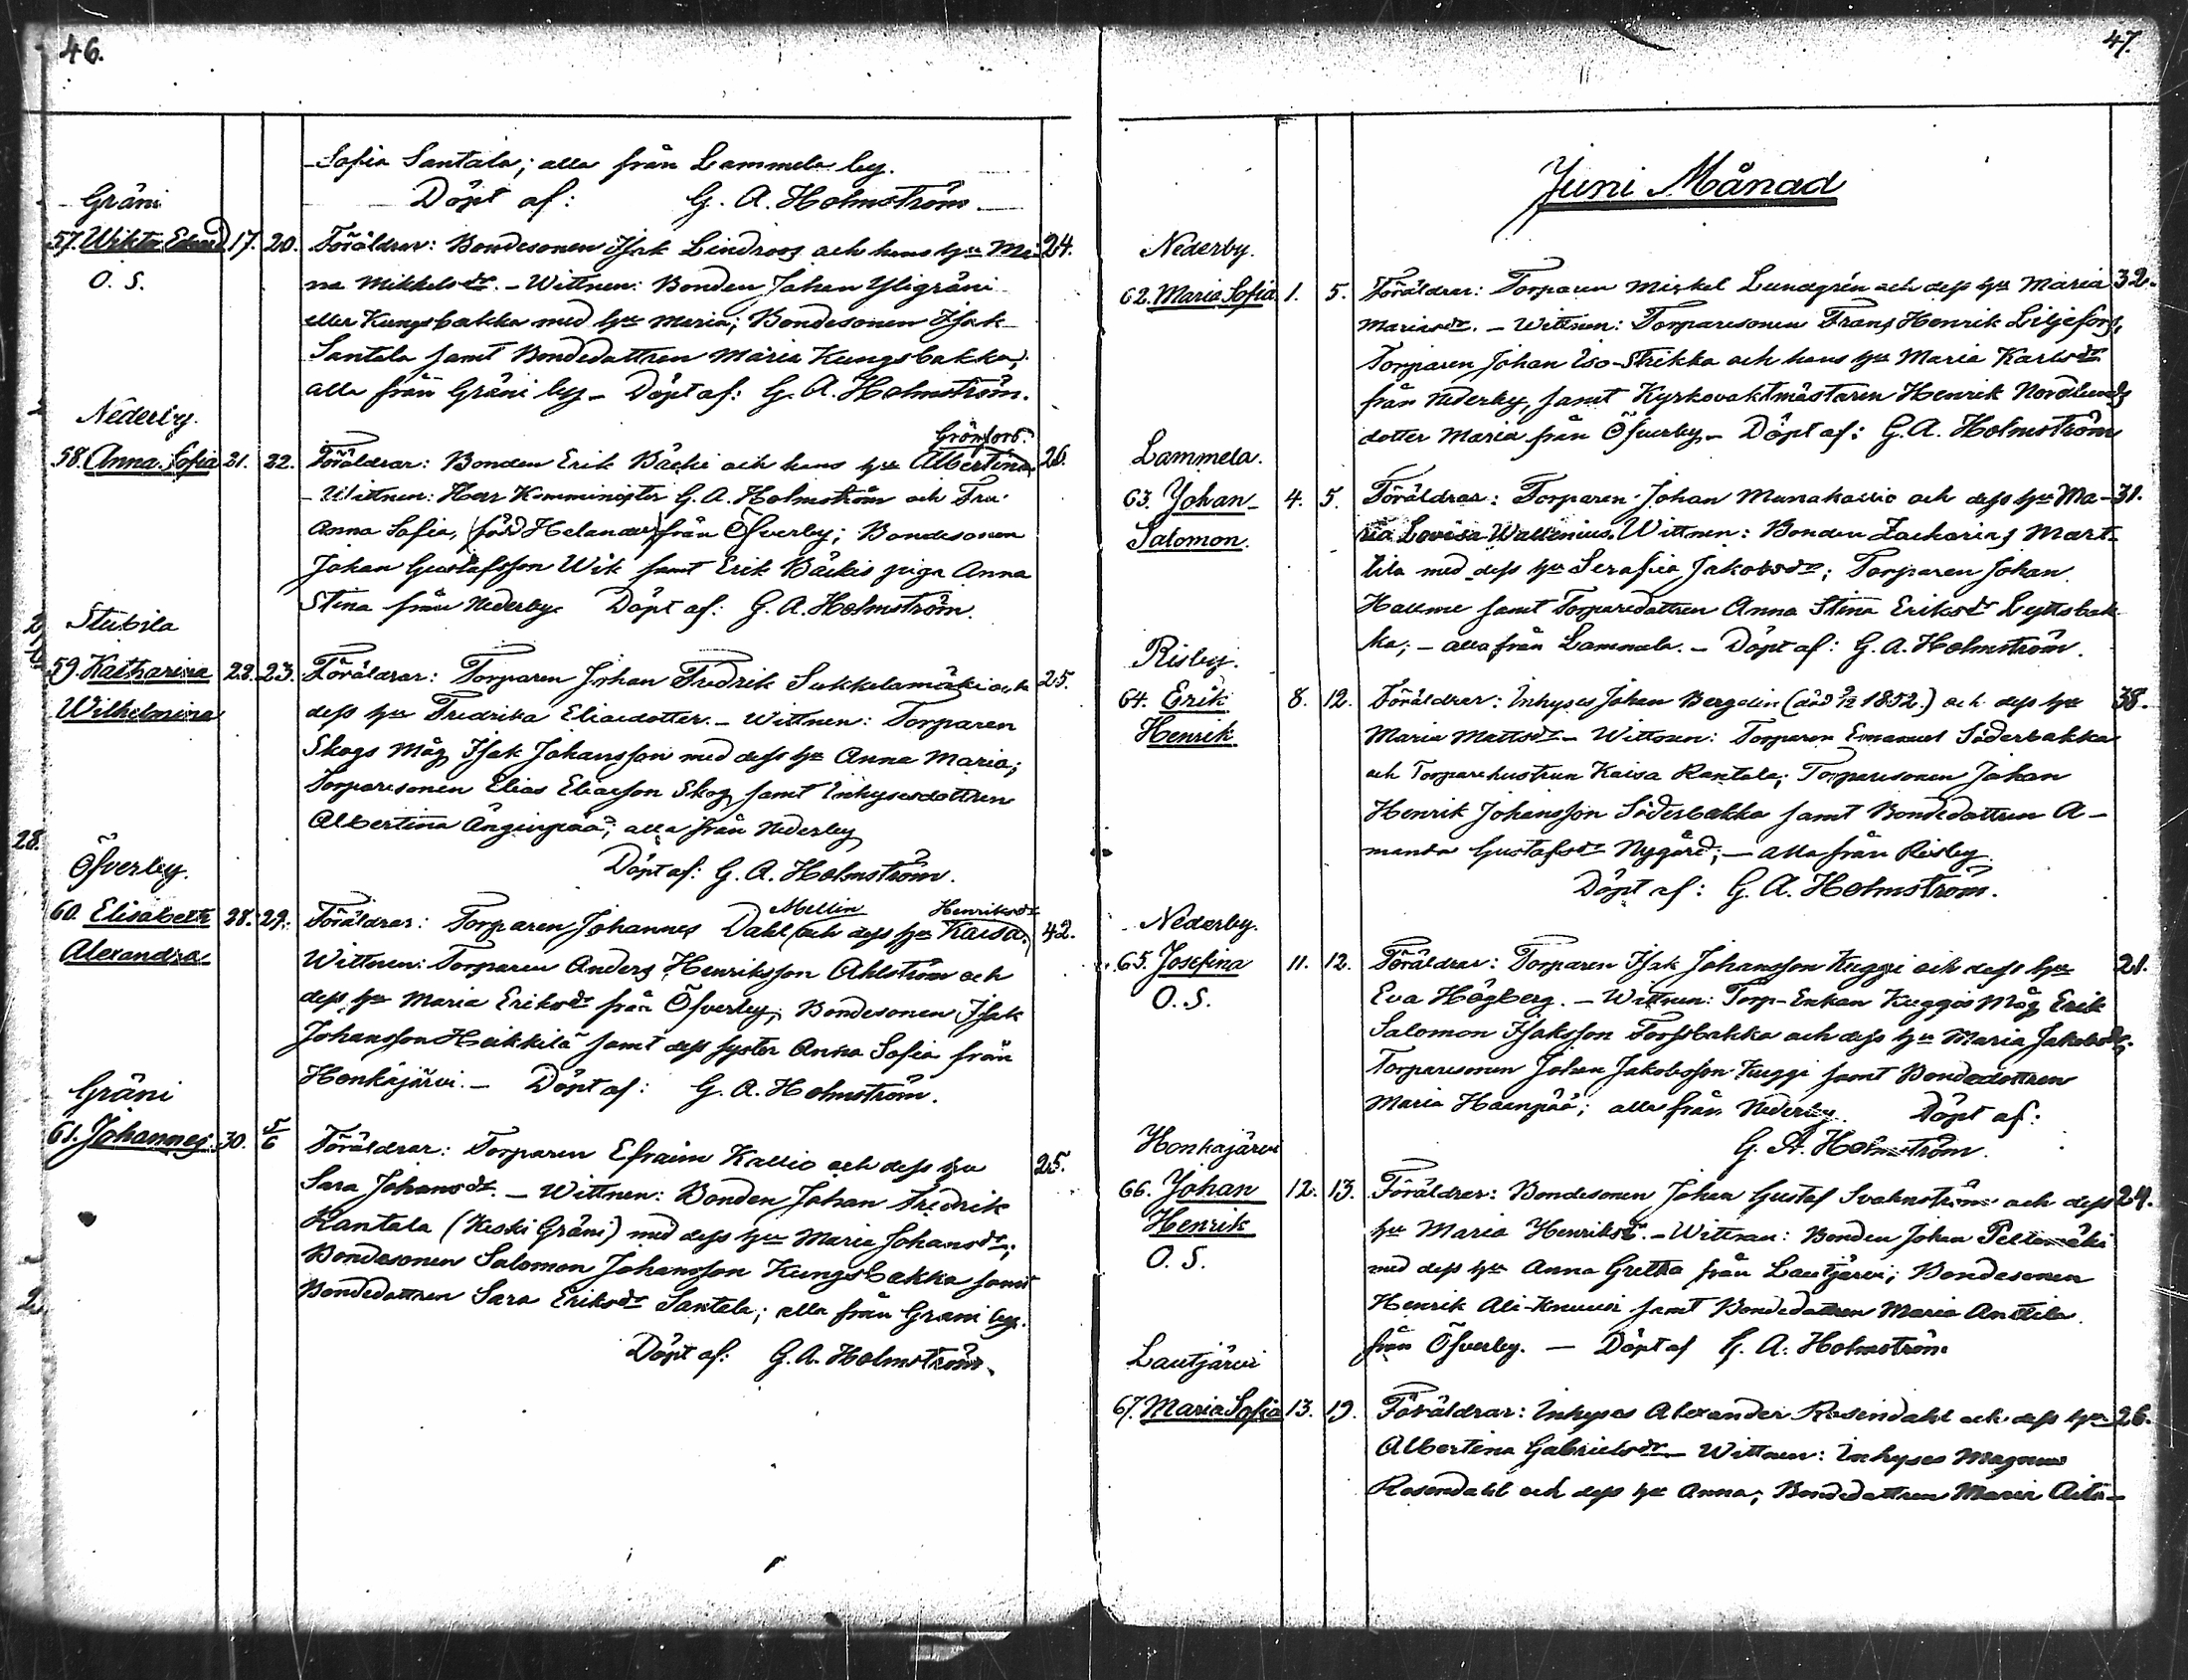 46.
Sofia Santala; alla från Lammela by.
Döpt af: G. A. Holmström.
Gräni
57. Wiktor Edvard 17. 20. Föräldrar: Bondesonen Isak Lindroos och hans hu 24.
O. S.
na Mikkelsdr. – Wittnen: Bonden Johan Yligräni
eller Kungsbakka med hu Maria; Bondesonen Isak
Santala samt Bondedottren Maria Kungsbakka;
alla från Gräni by – Döpt af: G. A. Holmström.
Nederby.
Grönfors.
58. Anna Sofia 21. 22. Föräldrar: Bonden Erik Bäcki och hans hu Albertina 26.
– Wittnen: Herr Komminister G. A. Holmström och Fru
Anna Sofia, född Helander från Öfverby; Bondesonen
Johan Gustafsson Wik samt Erik Bäckis piga Anna
Stina från Nederby. Döpt af: G. A. Holmström.
Stubila
59. Katharina 22. 23. Föräldrar: Torparen Johan Fredrik Sukkelamäki och 25.
Wilhelmina
dess hu Fredrika Eliaedotter. – Wittnen: Torparen
Skogs Måg Isak Johansson med dess hu Anna Maria;
Torparesonen Elias Eliaeson Skog samt Inhysesdottren
Albertina Änginpää; alla från Nederby
Döpt af: G. A. Holmström.
28.
Öfverby.
Mellin Henriksdr
60. Elisabeth 28. 29. Föräldrar: Torparen Johannes Dahl och dess hu Kaisa. 42.
Alexandra
Wittnen: Torparen Anders Henriksson Ahlström och
dess hu Maria Eriksdr från Öfverby; Bondesonen Isak
Johansson Heikkilä samt dess syster Anna Sofia från
Honkajärvi. – Döpt af: G. A. Holmström.
Gräni
61. Johannes. 30. 5/6 Föräldrar: Torparen Efraim Kallio och dess hu 25.
Sara Johansdr. – Wittnen: Bonden Johan Fredrik
Rantala (Keski Gräni) med dess hu Maria Johansdr;
Bondesonen Salomon Johansson Kungsbakka samt
Bondedottren Sara Eriksdr Santala; alla från Gräni by.
Döpt af: G. A. Holmström.
47.
Juni Månad
Nederby.
62. Maria Sofia 1. 5. Föräldrar: Torparen Mickel Lundgrén och dess hu Maria 32.
Mariasdr. – Wittnen: Torparesonen Frans Henrik Liljefors,
Torparen Johan Iso-Strikka och hans hu Maria Karlsdr
från Nederby, samt Kyrkovaktmästaren Henrik Nordlunds
dotter Maria från Öfverby – Döpt af: G. A. Holmström
Lammela.
63. Johan 4. 5. Föräldrar: Torparen Johan Murrakallio och dess hu Ma- 31.
Salomon.
ria Lovisa Wallenius. Wittnen: Bonden Zacharias Mart-
tila med dess hu Serafia Jakobsdr; Torparen Johan
Hallme samt Torparedottren Anna Stina Eriksdr Lyttsbak-
ka; – alla från Lammela. – Döpt af: G. A. Holmström.
Risby.
64. Erik 8. 12. Föräldrar: Inhyses Johan Bergelin (död 1852.) och dess hu 38.
Henrik
Maria Mattsdr – Wittnen: Torparen Emanuel Söderbakka
och Torparehustrun Kaisa Rantala; Torparesonen Johan
Henrik Johansson Söderbakka samt Bondedottren A-
manda Gustafsdr Nygård; – alla från Risby.
Döpt af: G. A. Holmström.
Nederby.
65. Josefina 11. 12. Föräldrar: Torparen Isak Johansson Kuggi och dess hu 21.
O. S.
Eva Högberg. – Wittnen: Torp-Enkan Kuggis Måg Erik
Salomon Isaksson Torfsbakka och dess hu Maria Jakobsdr;
Torparesonen Johan Jakobsson Kuggi samt Bondedottren
Maria Haenpää; alla från Nederby. Döpt af:
G. A. Holmström.
Honkajärvi
66. Johan 12. 13. Föräldrar: Bondesonen Johan Gustaf Svahnström och dess 24.
Henrik
O. S.
hu Maria Henriksdr. – Wittnen: Bonden Johan Peltomäki
med dess hu Anna Gretha från Lautjärvi; Bondesonen
Henrik Ali-Knuusi samt Bondedottren Maria Anttila
från Öfverby. – Döpt af G. A. Holmström
Lautjärvi
67. Maria Sofia 13. 19. Föräldrar: Inhyses Alexander Rosendahl och dess hu 26.
Albertina Gabrielsdr – Wittnen: Inhyses Magnus
Rosendahl och dess hu Anna; Bondedottren Maria Aito-